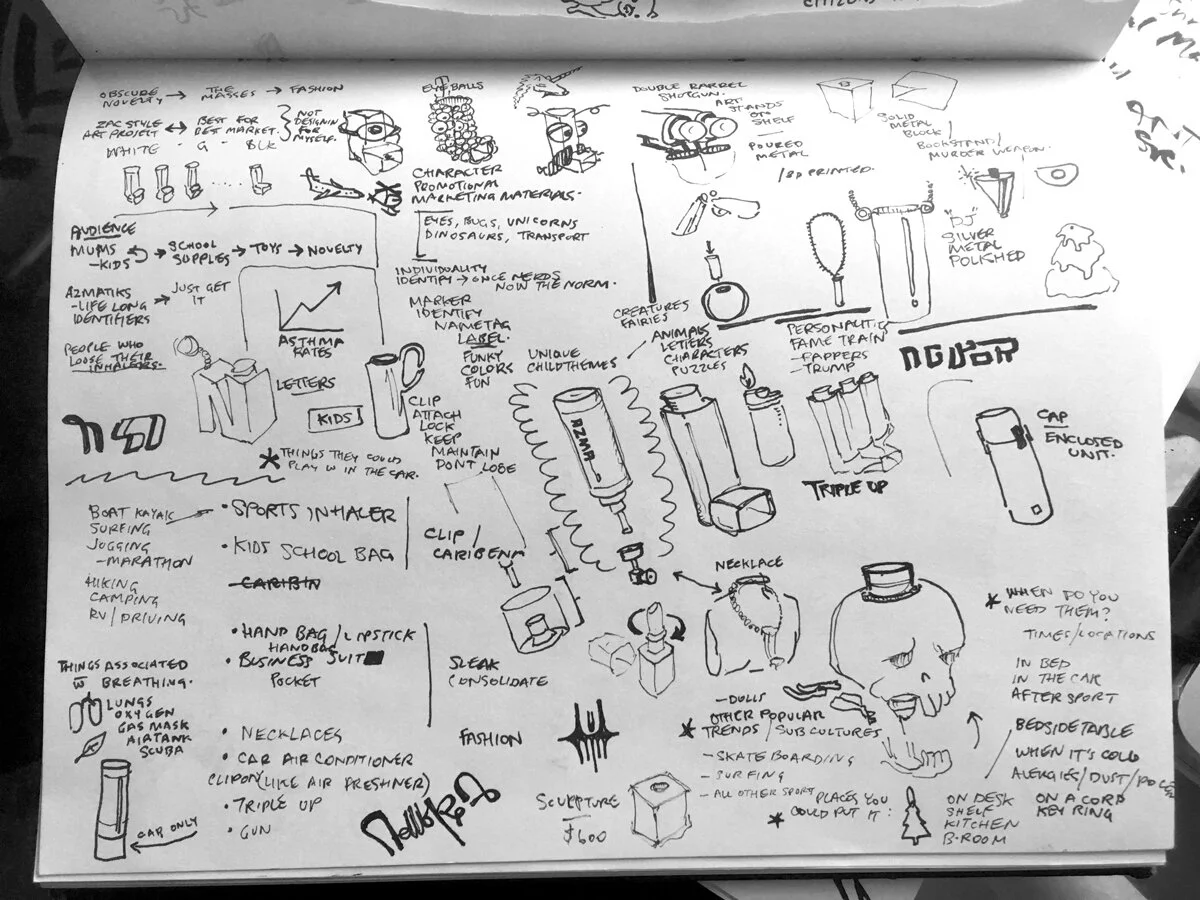 OBSCURE NOVELTY → THE MASSES → FASHION
ZAC STYLE
ART PROJECT ↔ BEST FOR
DEST MARKET.
NOT
DESIGNIN
FOR
MYSELF.
WHITE - G - BLK
EYEBALLS
CHARACTER
PROMOTIONAL
MARKETING MATERIALS.
EYES, BUGS, UNICORNS
DINOSAURS, TRANSPORT
DOUBLE BARREL
SHOTGUN.
ART
STANDS
OF
SHELF
POURED
METAL
/3D PRINTED.
SOLID
METAL
BLOCK/
BOOKSTAND/
MURDER WEAPON.
"DJ"
SILVER
METAL
POLISHED
AUDIENCE
MUMS
-KIDS
SCHOOL
SUPPLES → TOYS → NOVELTY
AZMATIKS
-LIFE LONG
IDENTIFIERS
→ JUST GET
IT
PEOPLE WHO
LOOSE THEIR
INHALERS.
ASTHMA
RATES
LETTERS
KIDS
* THINGS THEY COULD
PLAY W IN THE CAR.
INDIVIDUALITY
IDENTIFY → ONCE NERDS
NOW THE NORM.
MARKER
IDENTIFY
NAMETAG
LABEL.
FUNKY
COLORS
FUN
CLIP
ATTACH
LOCK
KEEP
MAINTAIN
DONT LOSE
UNIQUE
CHILDTHEMES
CREATURES
FAIRIES
ANIMALS
LETTERS
CHARACTERS
PUZZLES
PERSONALITIES
FAME TRAIN
- RAPPERS
- TRUMP
AZMA
TRIPLE UP
CAP
ENCLOSED
UNIT.
BOAT KAYAK
SURFING
JOGGING
- MARATHON
HIKING
CAMPING
RV/DRIVING
• SPORTS INHALER
• KIDS SCHOOL BAG
CARIBIN
• HAND BAG / LIPSTICK
HANDBAG
• BUSINESS SUIT
POCKET
• NECKLACES
• CAR AIR CONDITIONER
CLIPON (LIKE AIR FRESHNER)
• TRIPLE UP
• GUN
THINGS ASSOCIATED
W BREATHING.
LUNGS
OXYGEN
GAS MASK
AIRTANK
SCUBA
CAR ONLY
CLIP/
CARIBENA
SLEAK
CONSOLIDATE
FASHION
SCULPTURE
$600
NECKLACE
- DOLLS
* OTHER POPULAR
TRENDS / SUB CULTURES
- SKATE BOARDING
- SURFING
- ALL OTHER SPORT
* PLACES YOU
COULD PUT IT:
ON DESK
SHELF
KITCHEN
B-ROOM
ON A CORD
KEY RING
* WHEN DO YOU
NEED THEM?
TIMES/LOCATIONS
IN BED
IN THE CAR
AFTER SPORT
BEDSIDE TABLE
WHEN IT'S COLD
ALERGIES/DUST/POLLEN